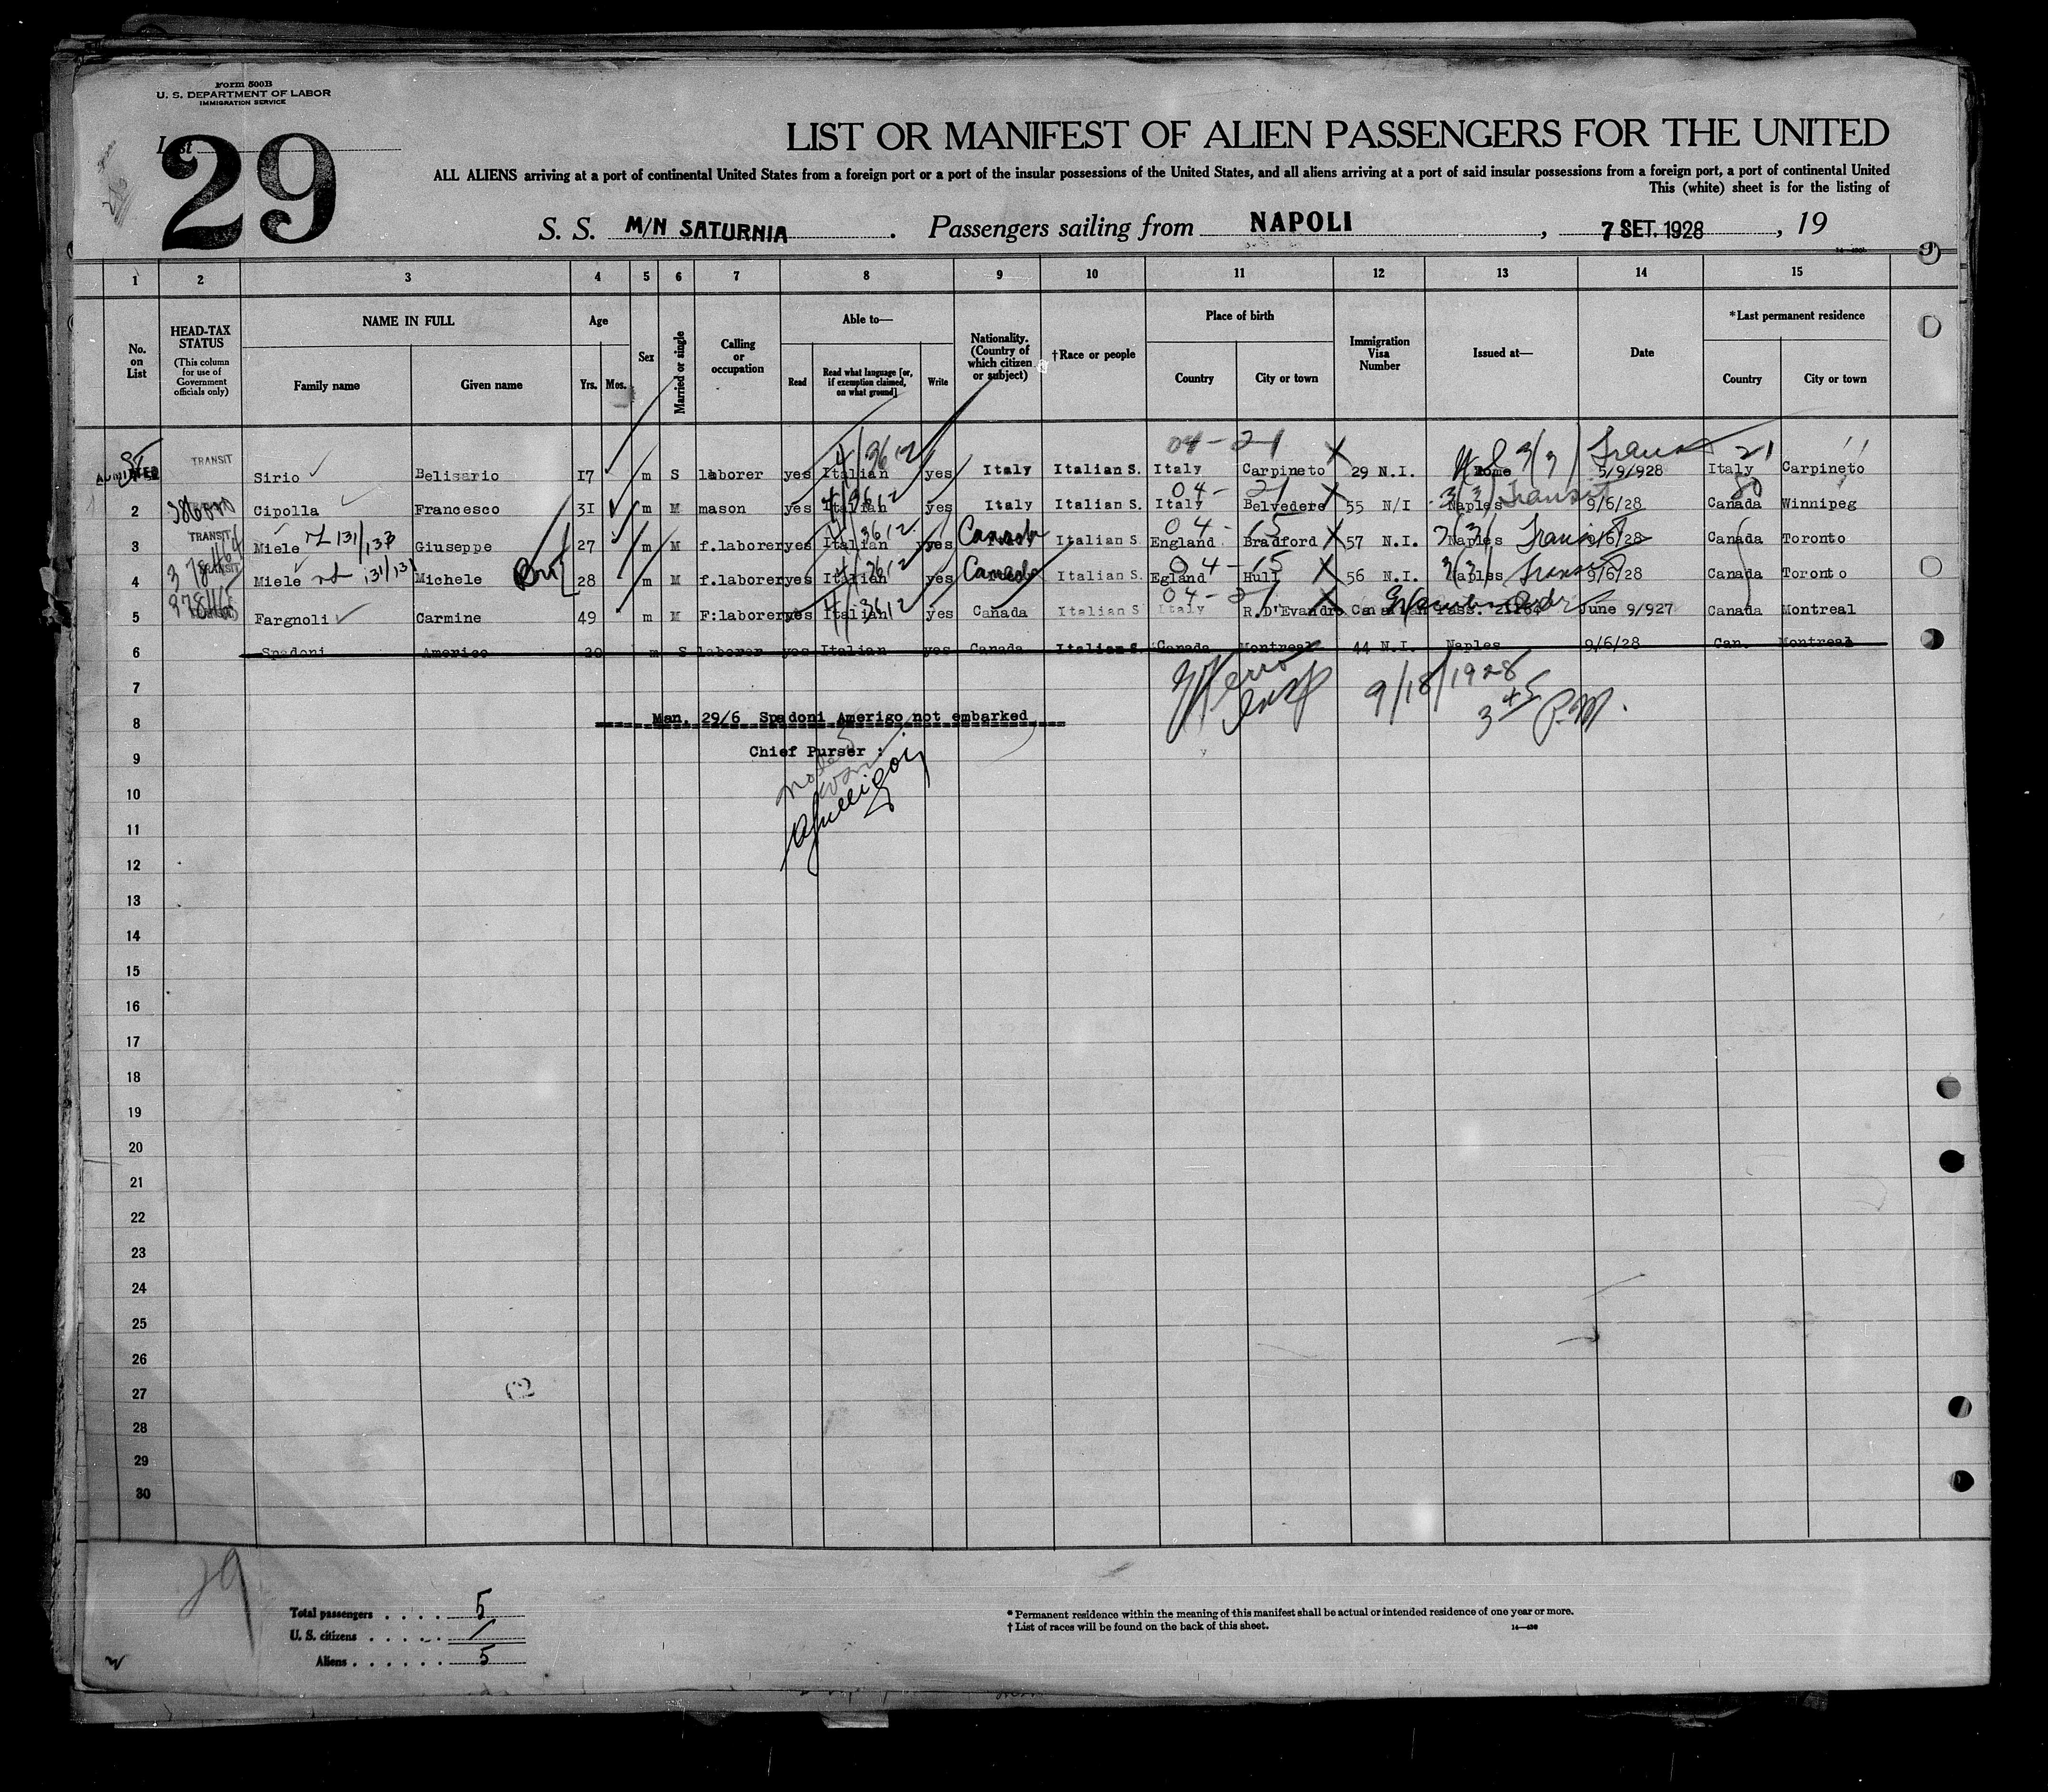 Form 500B
U. S. DEPARTMENT OF LABOR
IMMIGRATION SERVICE
List
29
LIST OR MANIFEST OF ALIEN PASSENGERS FOR THE UNITED
ALL ALIENS arriving at a port of continental United States from a foreign port or a port of the insular possessions of the United States, and all aliens arriving at a port of said insular possessions from a foreign port, a port of continental United
This (white) sheet is for the listing of
S. S. M/N SATURNIA . Passengers sailing from NAPOLI , 7 SET. 1928 , 19
1 2 3 4 5 6 7 8 9 10 11 12 13 14 15
No. on List
HEAD-TAX STATUS (This column for use of Government officials only)
NAME IN FULL Family name Given name
Age Yrs. Mos.
Sex
Married or single
Calling or occupation
Able to— Read Read what language [or, if exemption claimed, on what ground] Write
Nationality. (Country of which citizen or subject)
†Race or people
Place of birth Country City or town
Immigration Visa Number
Issued at—
Date
*Last permanent residence Country City or town
04-21
ADMITTED TRANSIT Sirio Belisario 17 m S laborer yes Italian yes Italy Italian S. Italy Carpineto 29 N.I. Rome 5/9/928 Italy Carpineto
04-21
2 Cipolla Francesco 31 m M mason yes Italian yes Italy Italian S. Italy Belvedere 55 N/I Naples Transit 9/6/28 Canada Winnipeg
04-15
3 TRANSIT Miele 131/137 Giuseppe 27 m M f.laborer yes Italian yes Canada Italian S England Bradford 57 N.I. Naples Transit 9/6/28 Canada Toronto
04-15
4 TRANSIT Miele 131/131 Michele 28 m M f.laborer yes Italian yes Canada Italian S. Egland Hull 56 N.I. Naples Transit 9/6/28 Canada Toronto
04-21
5 Fargnoli Carmine 49 m M F:laborer yes Italian yes Canada Italian S Italy R.D'Evandro Canadian Pass. June 9/927 Canada Montreal
6 Spadoni Americo 20 m S laborer yes Italian yes Canada Italian S. Canada Montreal 44 N.I. Naples 9/6/28 Can. Montreal
7
9/18/1928
3 45 P.M.
8 Man. 29/6 Spadoni Amerigo not embarked
Chief Purser :
9
10
11
12
13
14
15
16
17
18
19
20
21
22
23
24
25
26
27
28
29
30
29
Total passengers . . . . 5
U. S. citizens . . . . /
Aliens . . . . . . 5
* Permanent residence within the meaning of this manifest shall be actual or intended residence of one year or more.
† List of races will be found on the back of this sheet.